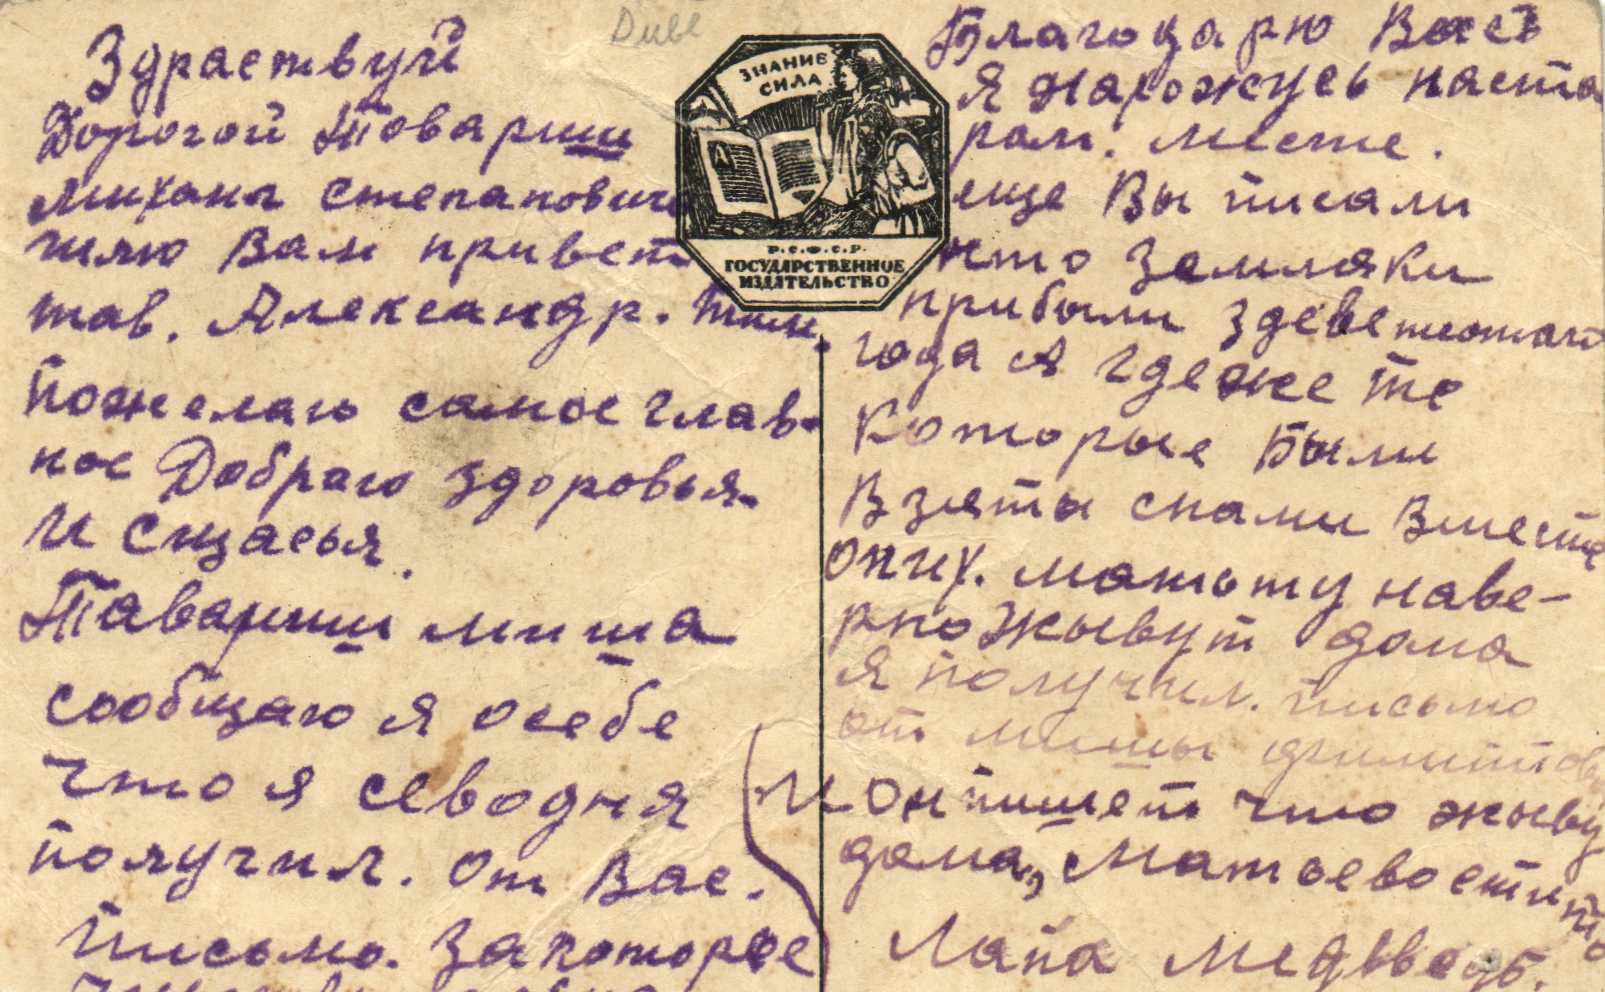 Здраствуй
Дорогой Товарищ
Михаил степанович
шлю Вам привет
тав. Александр.
пожелаю самое глав-
ное Доброго здоровья
и сщасья.
Таварищ миша
сообщаю я осебе
что я севодня
получил. от Вас.
письмо. Закоторое
Диве
ЗНАНИЕ
СИЛА
Р.С.Ф.С.Р.
ГОСУДАРСТВЕННОЕ
ИЗДАТЕЛЬСТВО
Благодарю Вас
я нахожусь наста
ром. месте.
еще Вы писали
что Земляки
прибыли
года А где же те
которые Были
Взяты снами Вместе
они наве-
рно Жывут дома
я получил. письмо
от мишы
и он пишет что жыву
дома,